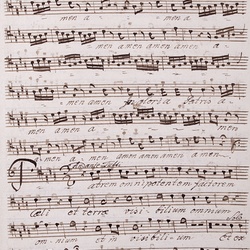 men a
men amen amen amen a
men amen in gloria Patris a
men amen a men
a men amen amen amen a men
Patrem omnipotentem factorem
Cœli et terræ visi bilium omnium
omnium et in visi bilium